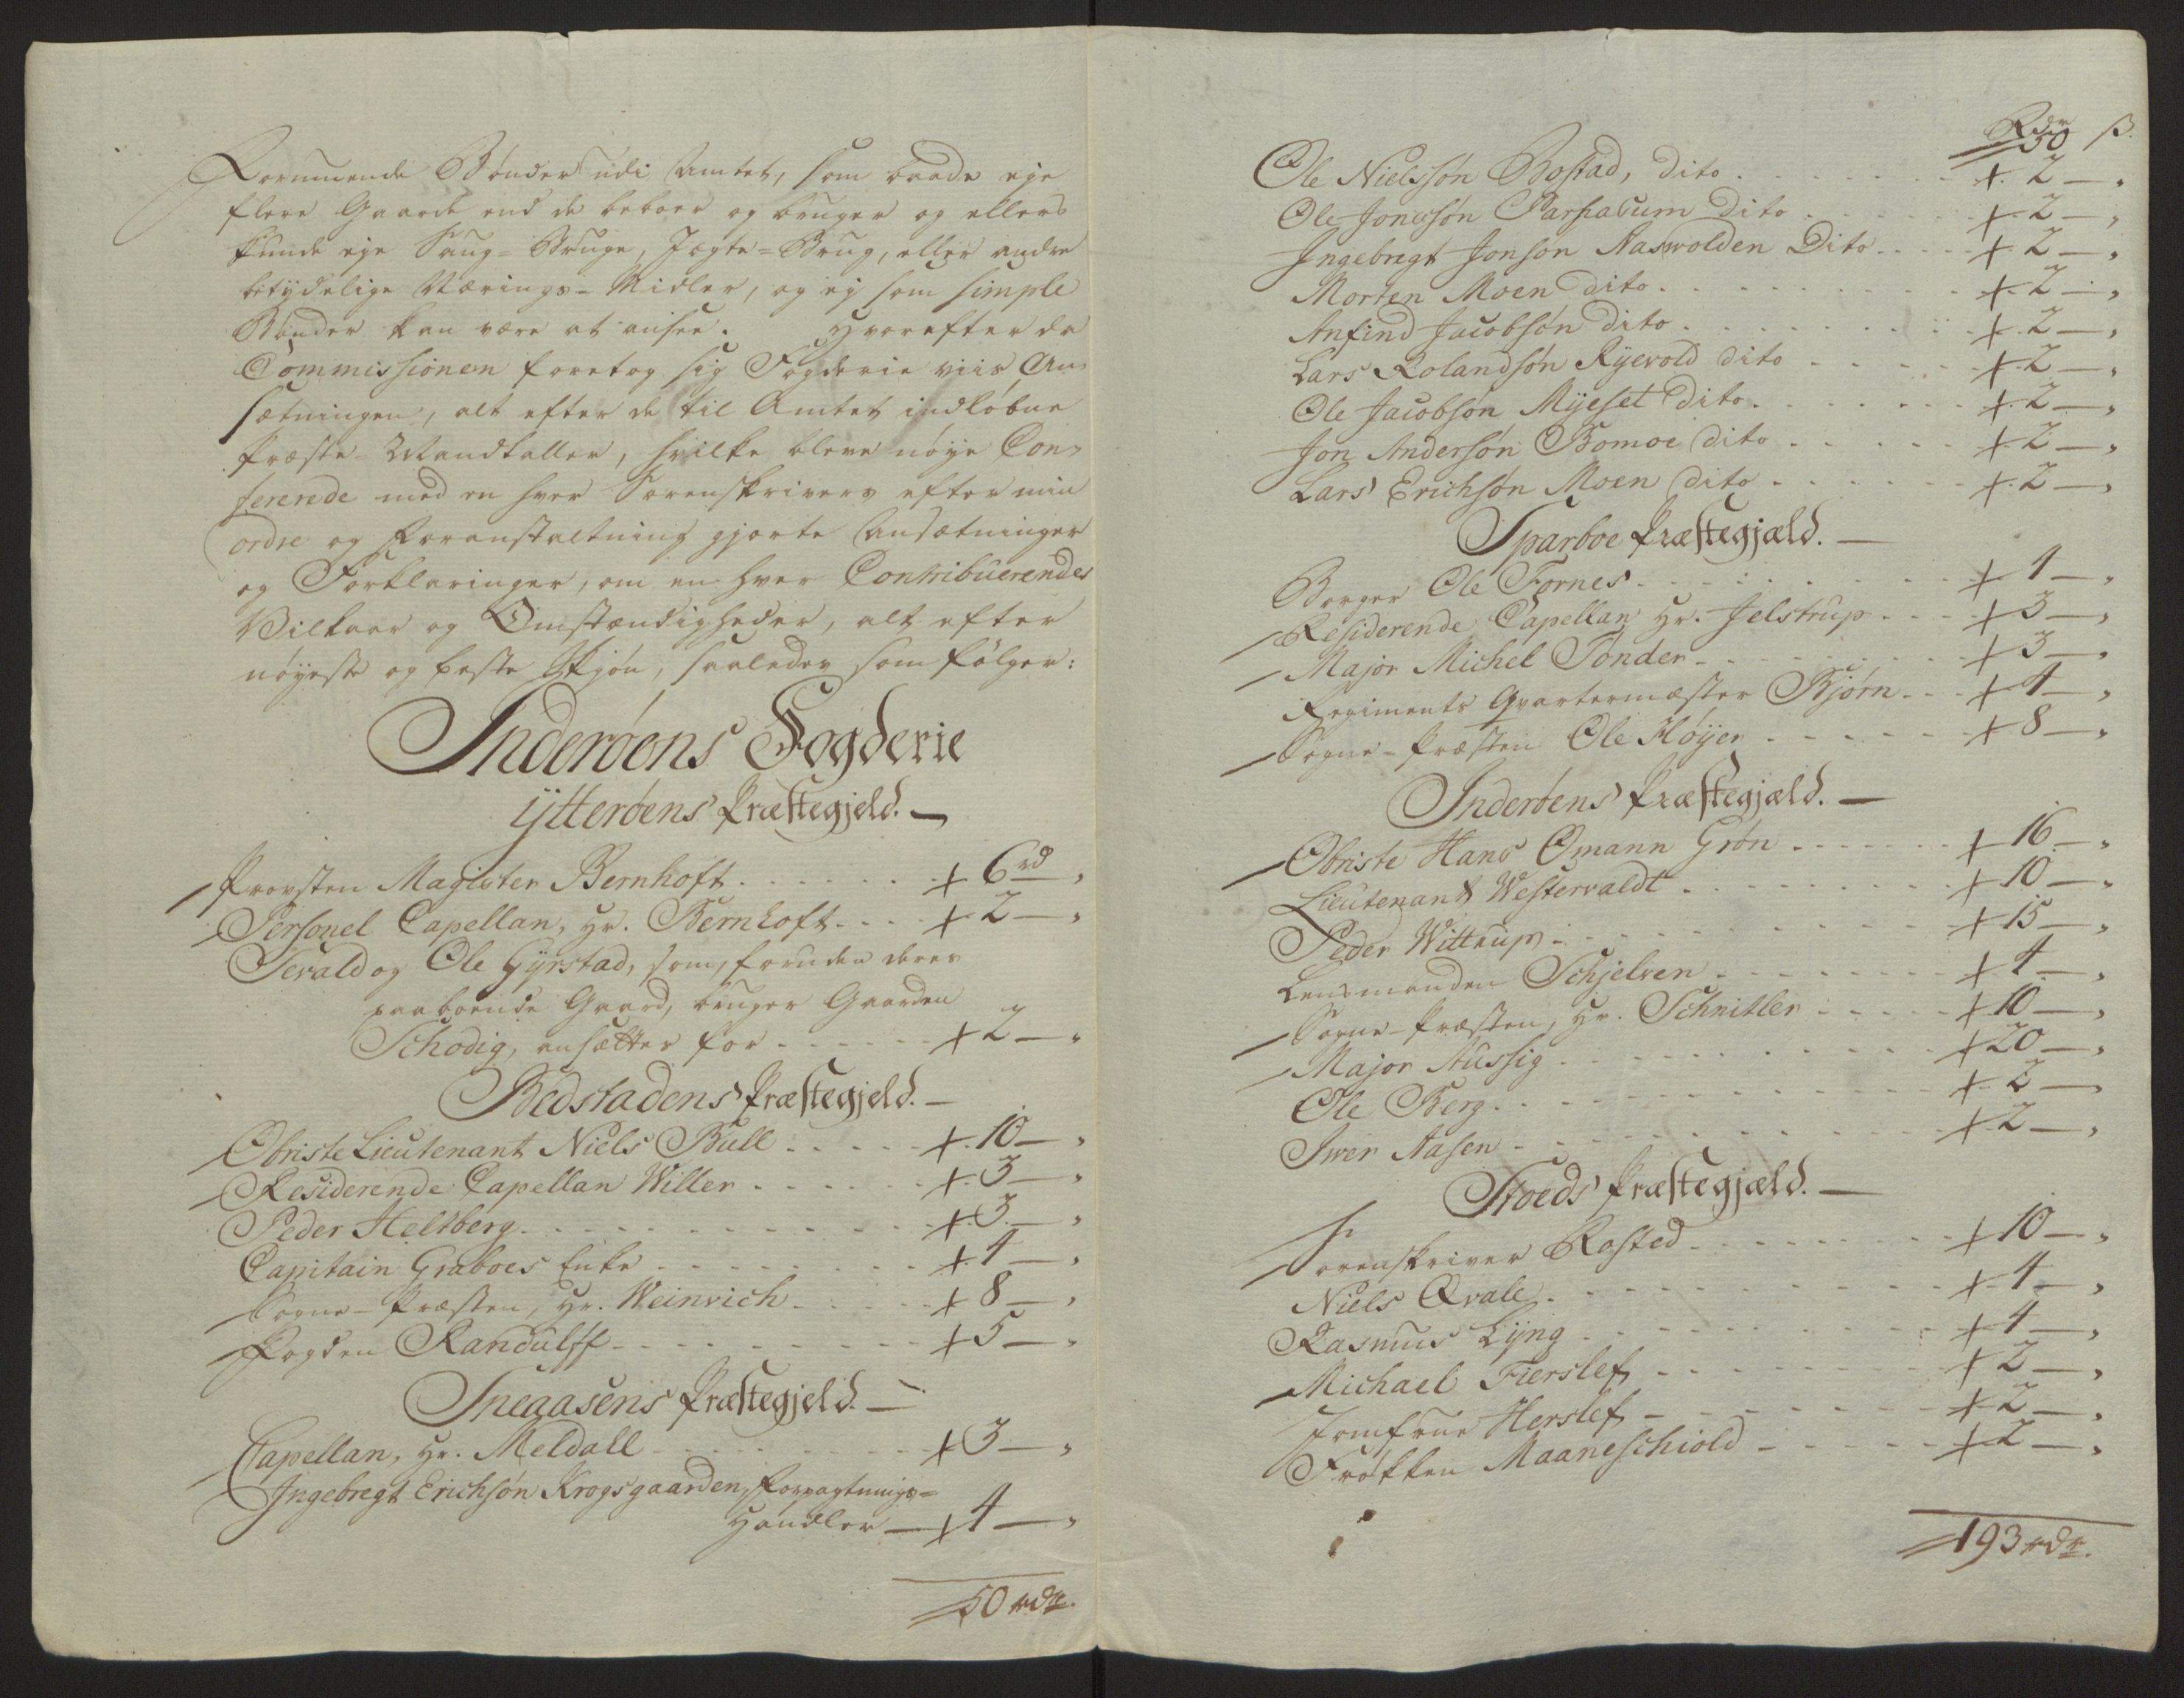 Formuende Bønder udi Amtet, som baade eje
flere Gaarde end de beboer og bruger og ellers
kunde eje Saug-Bruge, Jægte-Brug, eller andre
betydelige Nærings-Midler, og ej som simple
Bønder kan være at ansee. Hvorefter da
Commissionen foretog sig Fogderie viis An-
sætningen, alt efter de til Amtet indløbne
Præste-Mandtaller, hvilke bleve nøye Con-
ferende med en hver Sorenskrivers efter min
ordre og Foranstaltning gjorte Ansætninger
og Forklaringer, om en hver Contribuerendes
Vilkaar og Omstændigheder, alt efter
nøyeste og beste Skjøn, saaledes som følger:
Inderøens Fogderie
Ytterøens Præstegjeld. —
Provsten Magister Bernhoft . . . + 6 rd „
Personel Capellan, Hr. Bernhoft . . . + 2 — „
Sevald og Ole Gyrstad, som, foruden deres
paaboende Gaard, bruger Gaarden
Schodig, ansættes for . . . + 2 — „
Bedstadens Præstegjeld. —
Obriste Lieutenant Niels Bull . . . + 10 — „
Residerende Capellan Willer . . . + 3 — „
Peder Heltberg . . . + 3 — „
Capitain Graboes Enke . . . + 4 — „
Sogne-Præsten, Hr. Weinrich . . . + 8 — „
Fogden Randulff . . . + 5 — „
Sneaasens Præstegjeld. —
Capellan, Hr. Meldall . . . + 3 — „
Ingebregt Erichsøn Krogsgaarden, Forpagtnings-
Handler — + 4 — „
50 rdr.
Rdr ß.
50
Ole Nielssøn Bostad, dito . . . + 2 — „
Ole Jonessøn dito . . . + 2 — „
Ingebregt Jonson Aaswolden Dito . . . + 2 — „
Morten Moen dito . . . + 2 — „
Anfind Jacobsøn dito . . . + 2 — „
Lars Rolandsøn Ryevold dito . . . + 2 — „
Ole Jacobsøn Myeset dito . . . + 2 — „
Jon Andersøn Bomoe dito . . . + 2 — „
Lars Erichsøn Moen dito . . . + 2 — „
Sparboe Præstegjæld. —
Borger Ole Fornes . . . + 1 — „
Residerende Capellan Hr. Jelstrup . . . + 3 — „
Major Michel Tønder . . . + 3 — „
Regiments Qvartermæster Bjørn . . . + 4 — „
Sogne-Præsten Ole Høyer . . . + 8 — „
Inderøens Præstegjæld. —
Obriste Hans Omann Grøn . . . + 16 — „
Lieutenant Westervaldt . . . + 10 — „
Peder Wittrup . . . + 15 — „
Lensmanden Schjelven . . . + 4 — „
Sogne-Præsten, Hr. Schnitler . . . + 10 — „
Major Hussig . . . + 20 — „
Ole Berg . . . + 2 — „
Iwer Aasen . . . + 2 — „
Stoeds Præstegjæld. —
Sorenskriver Rosted . . . + 10 — „
Niels Qvale . . . + 4 — „
Rasmus Lyng . . . + 4 — „
Michael Fierslef . . . + 2 — „
Jomfrue Herslef . . . + 2 — „
Frøkken Maaneschiold . . . + 2 — „
193 rdr.